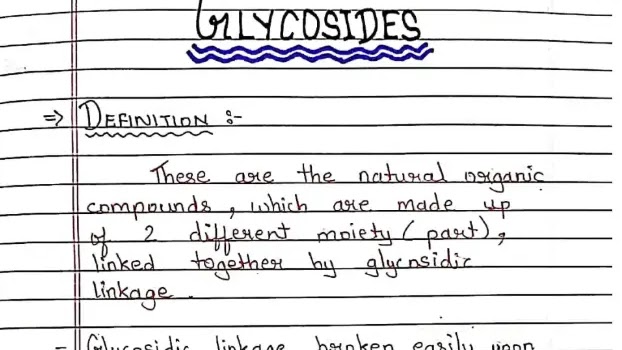 GLYCOSIDES
⇒ DEFINITION :-
These are the natural organic
compounds, which are made up
of 2 different moiety (part),
linked together by glycosidic
linkage.
- Glycosidic linkage broken easily upon